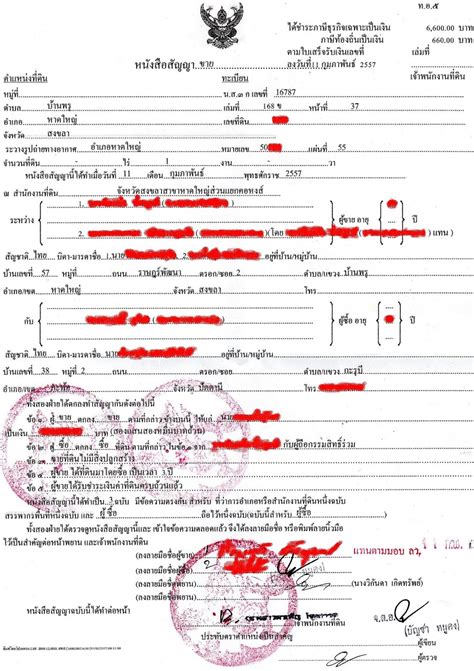 ท.อ.๕
ได้ชำระภาษีธุรกิจเฉพาะเป็นเงิน 6,600.00 บาท
ภาษีท้องถิ่นเป็นเงิน 660.00 บาท
ตามใบเสร็จรับเงินเลขที่ เล่มที่
หนังสือสัญญา ขาย ลงวันที่ 11 กุมภาพันธ์ 2557
เจ้าพนักงานที่ดิน
ตำแหน่งที่ดิน ทะเบียน
หมู่ที่ น.ส.๓ ก เลขที่ 16787
ตำบล บ้านพรุ เล่มที่ 168 ข หน้าที่ 37
อำเภอ หาดใหญ่ เลขที่ดิน
จังหวัด สงขลา
ระวางรูปถ่ายทางอากาศ อำเภอหาดใหญ่ หมายเลข 50 แผ่นที่ 55
จำนวนที่ดิน - ไร่ 1 งาน - วา
หนังสือสัญญานี้ได้ทำเมื่อวันที่ 11 เดือน กุมภาพันธ์ พุทธศักราช 2557
ณ สำนักงานที่ดิน จังหวัดสงขลาสาขาหาดใหญ่ส่วนแยกคอหงส์
1.
ระหว่าง ผู้ขาย อายุ ปี
2. (โดย แทน)
สัญชาติ ไทย บิดา-มารดาชื่อ 1.นาย อยู่ที่บ้าน/หมู่บ้าน
บ้านเลขที่ 57 หมู่ที่ ถนน ราษฎร์พัฒนา ตรอก/ซอย 2 ตำบล/แขวง บ้านพรุ
อำเภอ/เขต หาดใหญ่ จังหวัด สงขลา โทร
กับ ผู้ซื้อ อายุ ปี
สัญชาติ ไทย บิดา-มารดาชื่อ นาย อยู่ที่บ้าน/หมู่บ้าน
บ้านเลขที่ 38 หมู่ที่ 2 ถนน - ตรอก/ซอย - ตำบล/แขวง
อำเภอ/เขต จังหวัด ปัตตานี โทร
ทั้งสองฝ่ายได้ตกลงทำสัญญากันดังต่อไปนี้
ข้อ ๑ ผู้ ขาย ตกลง ขาย ตามที่กล่าวข้างบนนี้ ให้แก่ นาย
เป็นเงิน บาท (สองแสนสองหมื่นบาทถ้วน)
ข้อ ๒ ผู้ ซื้อ ตกลง ซื้อ ที่ดิน ตามที่กล่าวในข้อ ๑ จาก กับผู้ถือกรรมสิทธิ์ร่วม
ข้อ ๓ ขายที่ดินไม่มีสิ่งปลูกสร้าง
ข้อ ๔ ผู้ขาย ได้ที่ดินมาโดยซื้อ เป็นเวลา 3 ปี
ข้อ ๕ ผู้ขายได้รับชำระเงินค่าที่ดินครบถ้วนแล้ว
หนังสือสัญญานี้ได้ทำ 3 ฉบับ มีข้อความตรงกัน สำหรับ ที่ว่าการอำเภอหรือสำนักงานที่ดินหนึ่งฉบับ
สรรพากรพื้นที่หนึ่งฉบับ และ ผู้ซื้อ ถือไว้หนึ่งฉบับ (ฉบับนี้สำหรับ ผู้ซื้อ)
ทั้งสองฝ่ายได้ตรวจดูหนังสือสัญญานี้และ เข้าใจข้อความตลอดแล้ว จึงได้ลงลายมือชื่อ หรือพิมพ์ลายนิ้วมือ
ไว้เป็นสำคัญต่อหน้าพยาน และเจ้าพนักงานที่ดิน
(ลงลายมือชื่อผู้ขาย) แทนตามมอบ
(ลงลายมือชื่อผู้ซื้อ)
(ลงลายมือชื่อพยาน) (นางวิภันดา เกิดทรัพย์)
(ลงลายมือชื่อพยาน) จ.ส.อ.
หนังสือสัญญาฉบับนี้ได้ทำต่อหน้า เจ้าพนักงานที่ดิน
ประทับตราตำแหน่งเป็นสำคัญ ผู้เขียน
ผู้ตรวจ